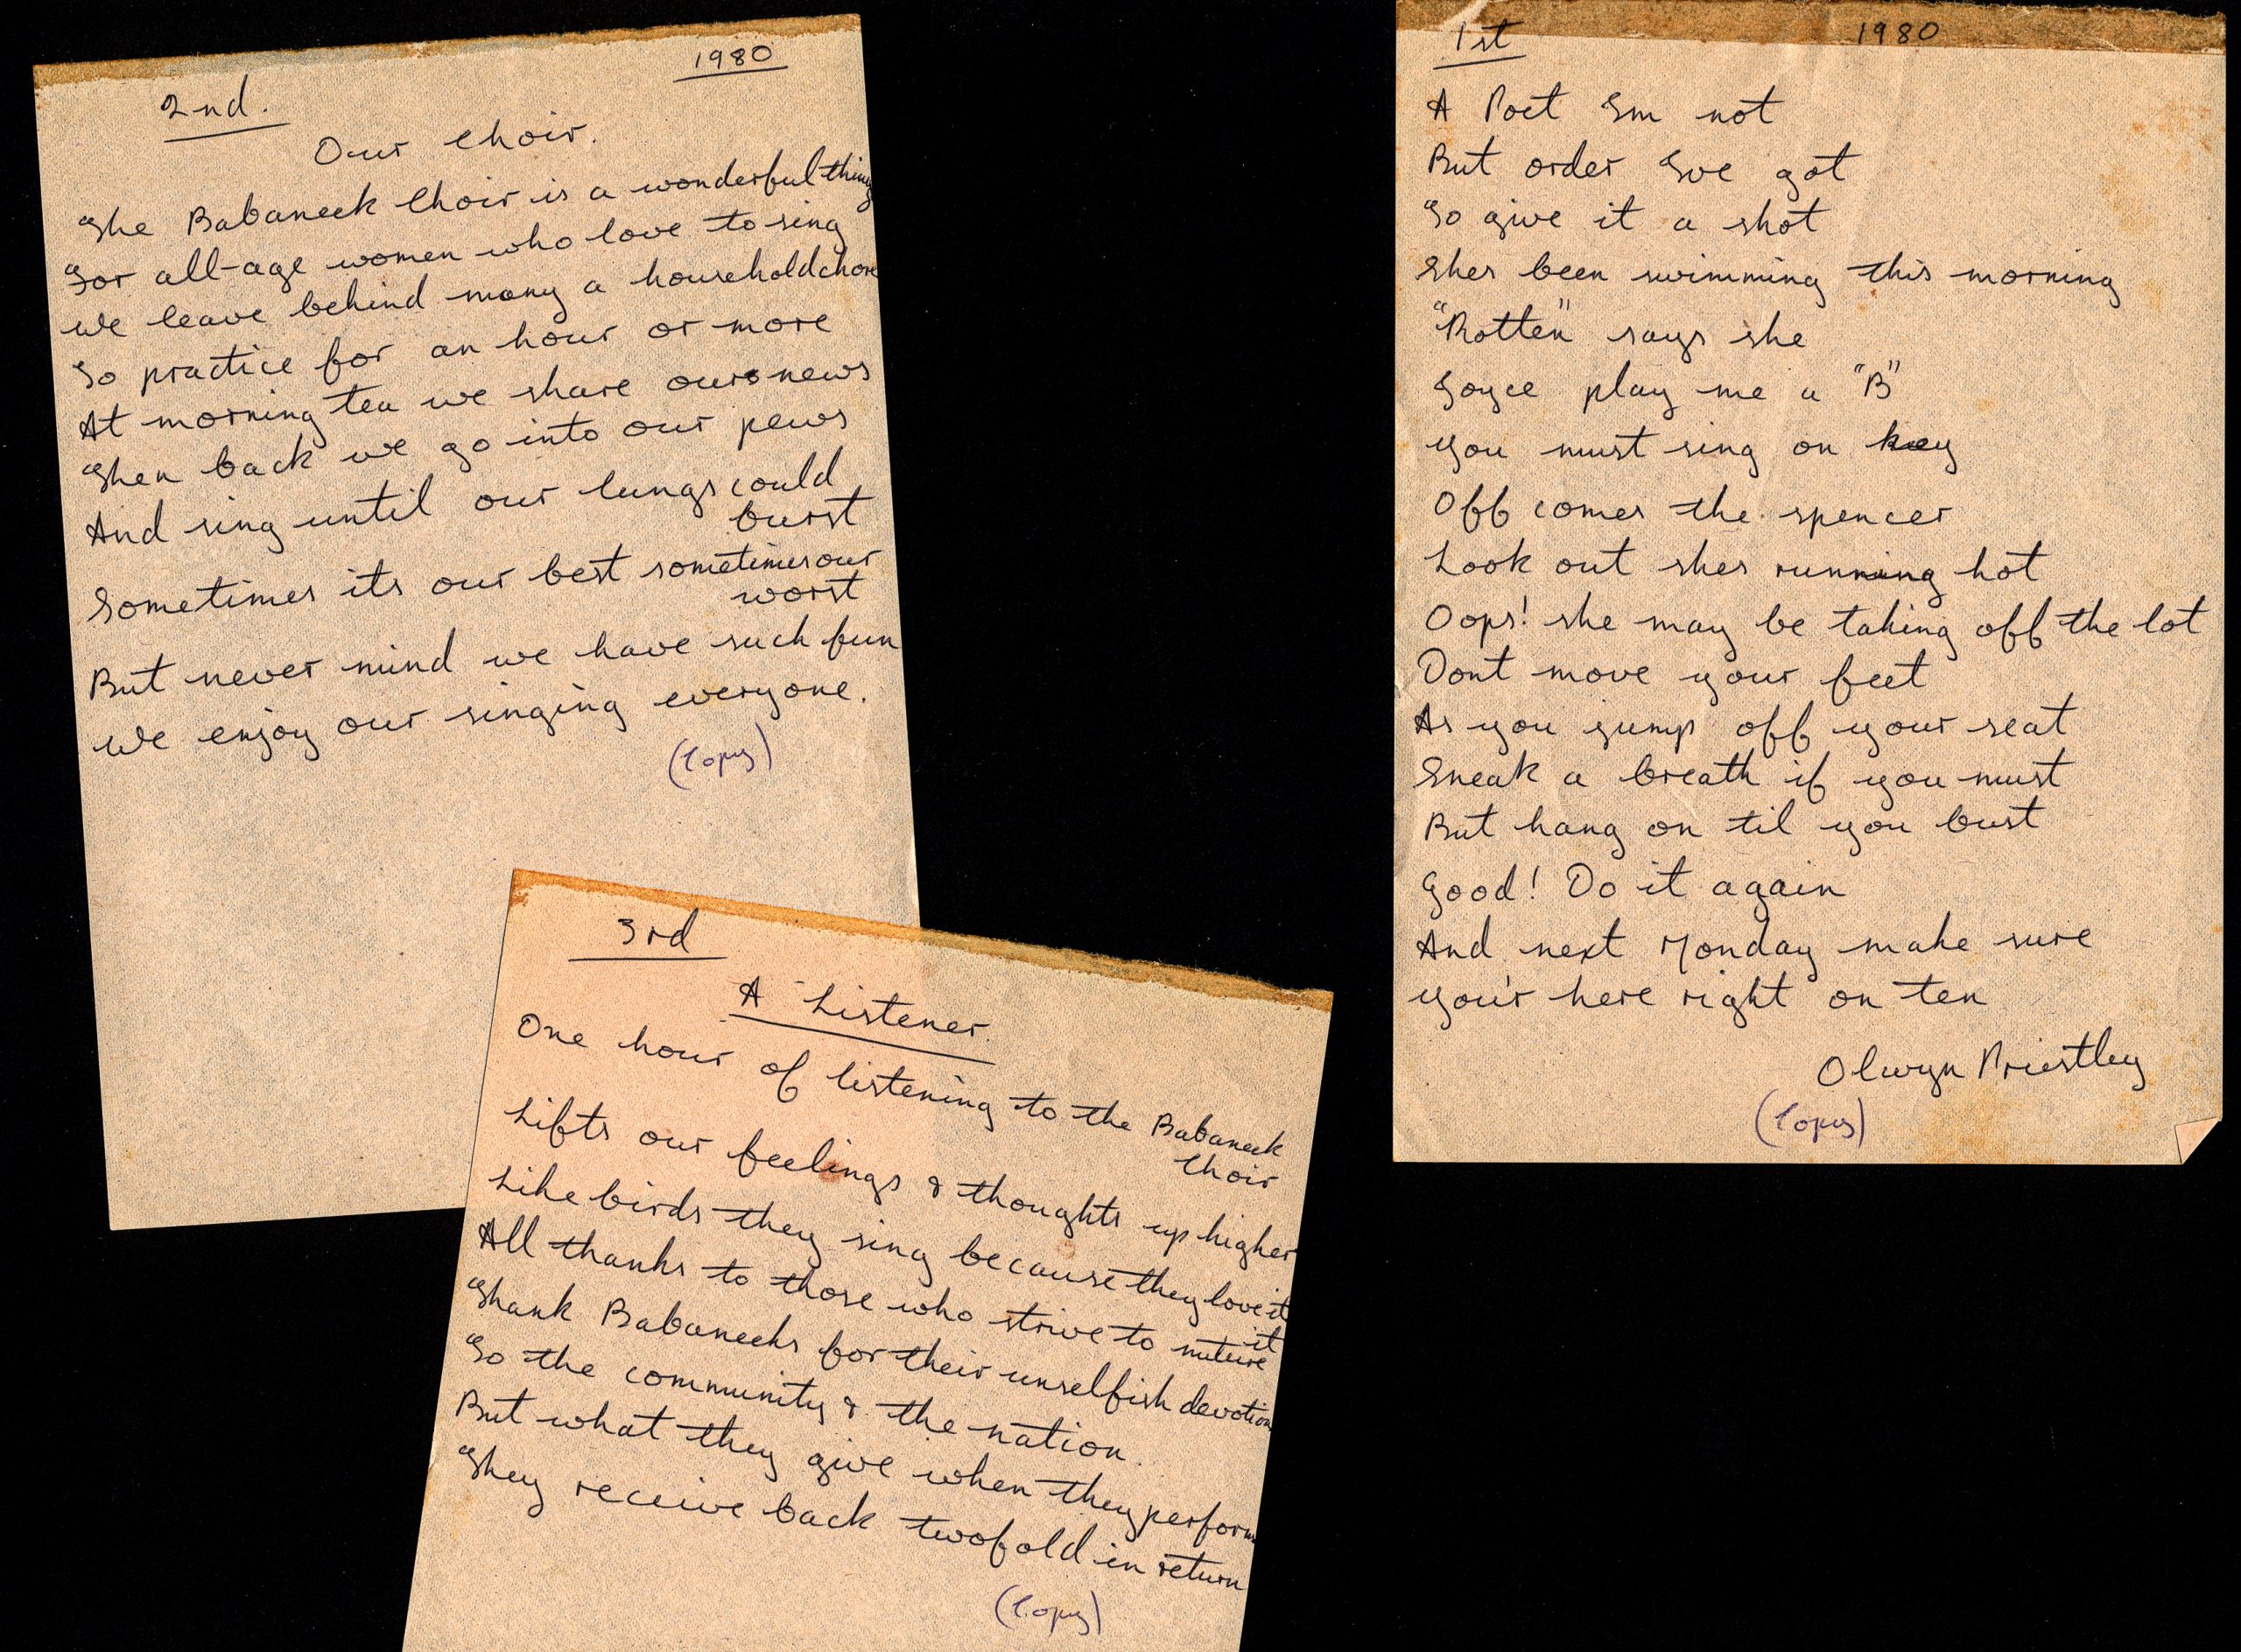 2nd.
1980
Our Choir.
The Babaneek Choir is a wonderful thing
For all-age women who love to sing
We leave behind many a household chore
To practice for an hour or more
At morning tea we share our news
Then back we go into our pews
And sing until our lungs could
burst
Sometimes its our best sometimes our
worst
But never mind we have such fun
We enjoy our singing everyone.
(Copy)
3rd
A Listener.
One hour of listening to the Babaneek
Choir
Lifts our feelings & thoughts up higher
Like birds they sing because they love it
All thanks to those who strive to nuture
it
Thank Babaneeks for their unselfish devotion
To the community & the nation.
But what they give when they perform
They receive back twofold in return
(Copy)
1st
1980
A Poet Im not
But order Ive got
To give it a shot
Shes been swimming this morning
"Rotten" says she
Joyce play me a "B"
You must sing on key
Off comes the spencer
Look out shes running hot
Oops! she may be taking off the lot
Dont move your feet
As you jump off your seat
Sneak a breath if you must
But hang on til you bust
Good! Do it again
And next Monday make sure
you'r here right on ten
Olwyn Priestley
(Copy)